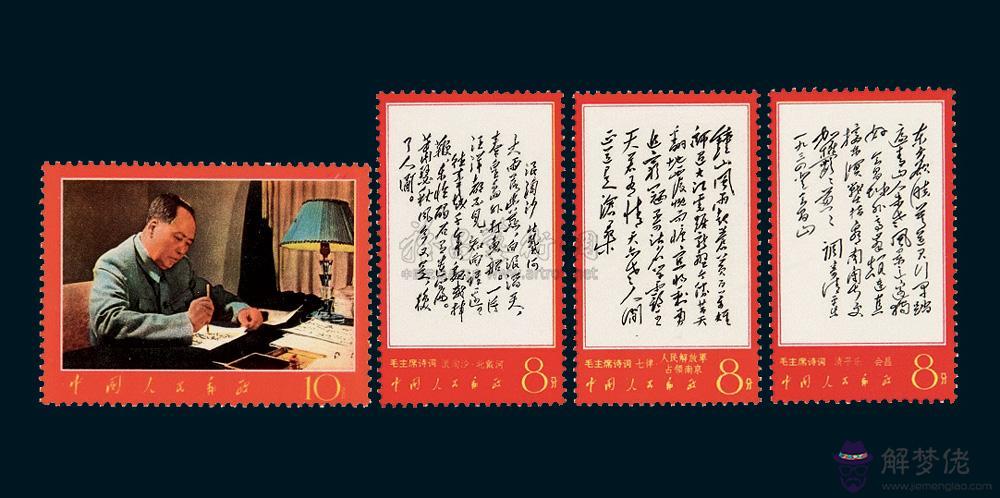 中国人民邮政 10分
浪淘沙 北戴河
大雨落幽燕，白浪滔天，
秦皇岛外打鱼船。一片
汪洋都不见，知向谁边？
往事越千年，魏武挥
鞭，东临碣石有遗篇。
萧瑟秋风今又是，换
了人间。
毛主席诗词 浪淘沙·北戴河
中国人民邮政 8分
鍾山風雨起蒼黄百万雄
师过大江虎踞龙盘今胜昔天
翻地覆慨而慷宜将剩勇
追穷寇不可沽名学霸王
天若有情天亦老人间
正道是沧桑
毛主席诗词 七律·人民解放軍
占領南京
中国人民邮政 8分
东方欲晓莫道君行早踏
遍青山人未老风景这边独
好会昌城外高峰颠连直
接东溟战士指看南粤更
加郁郁葱葱 调寄清平乐
一九三四年登会昌山
毛主席诗词 清平乐·会昌
中国人民邮政 8分
解梦佬
www.jiemenglao.com